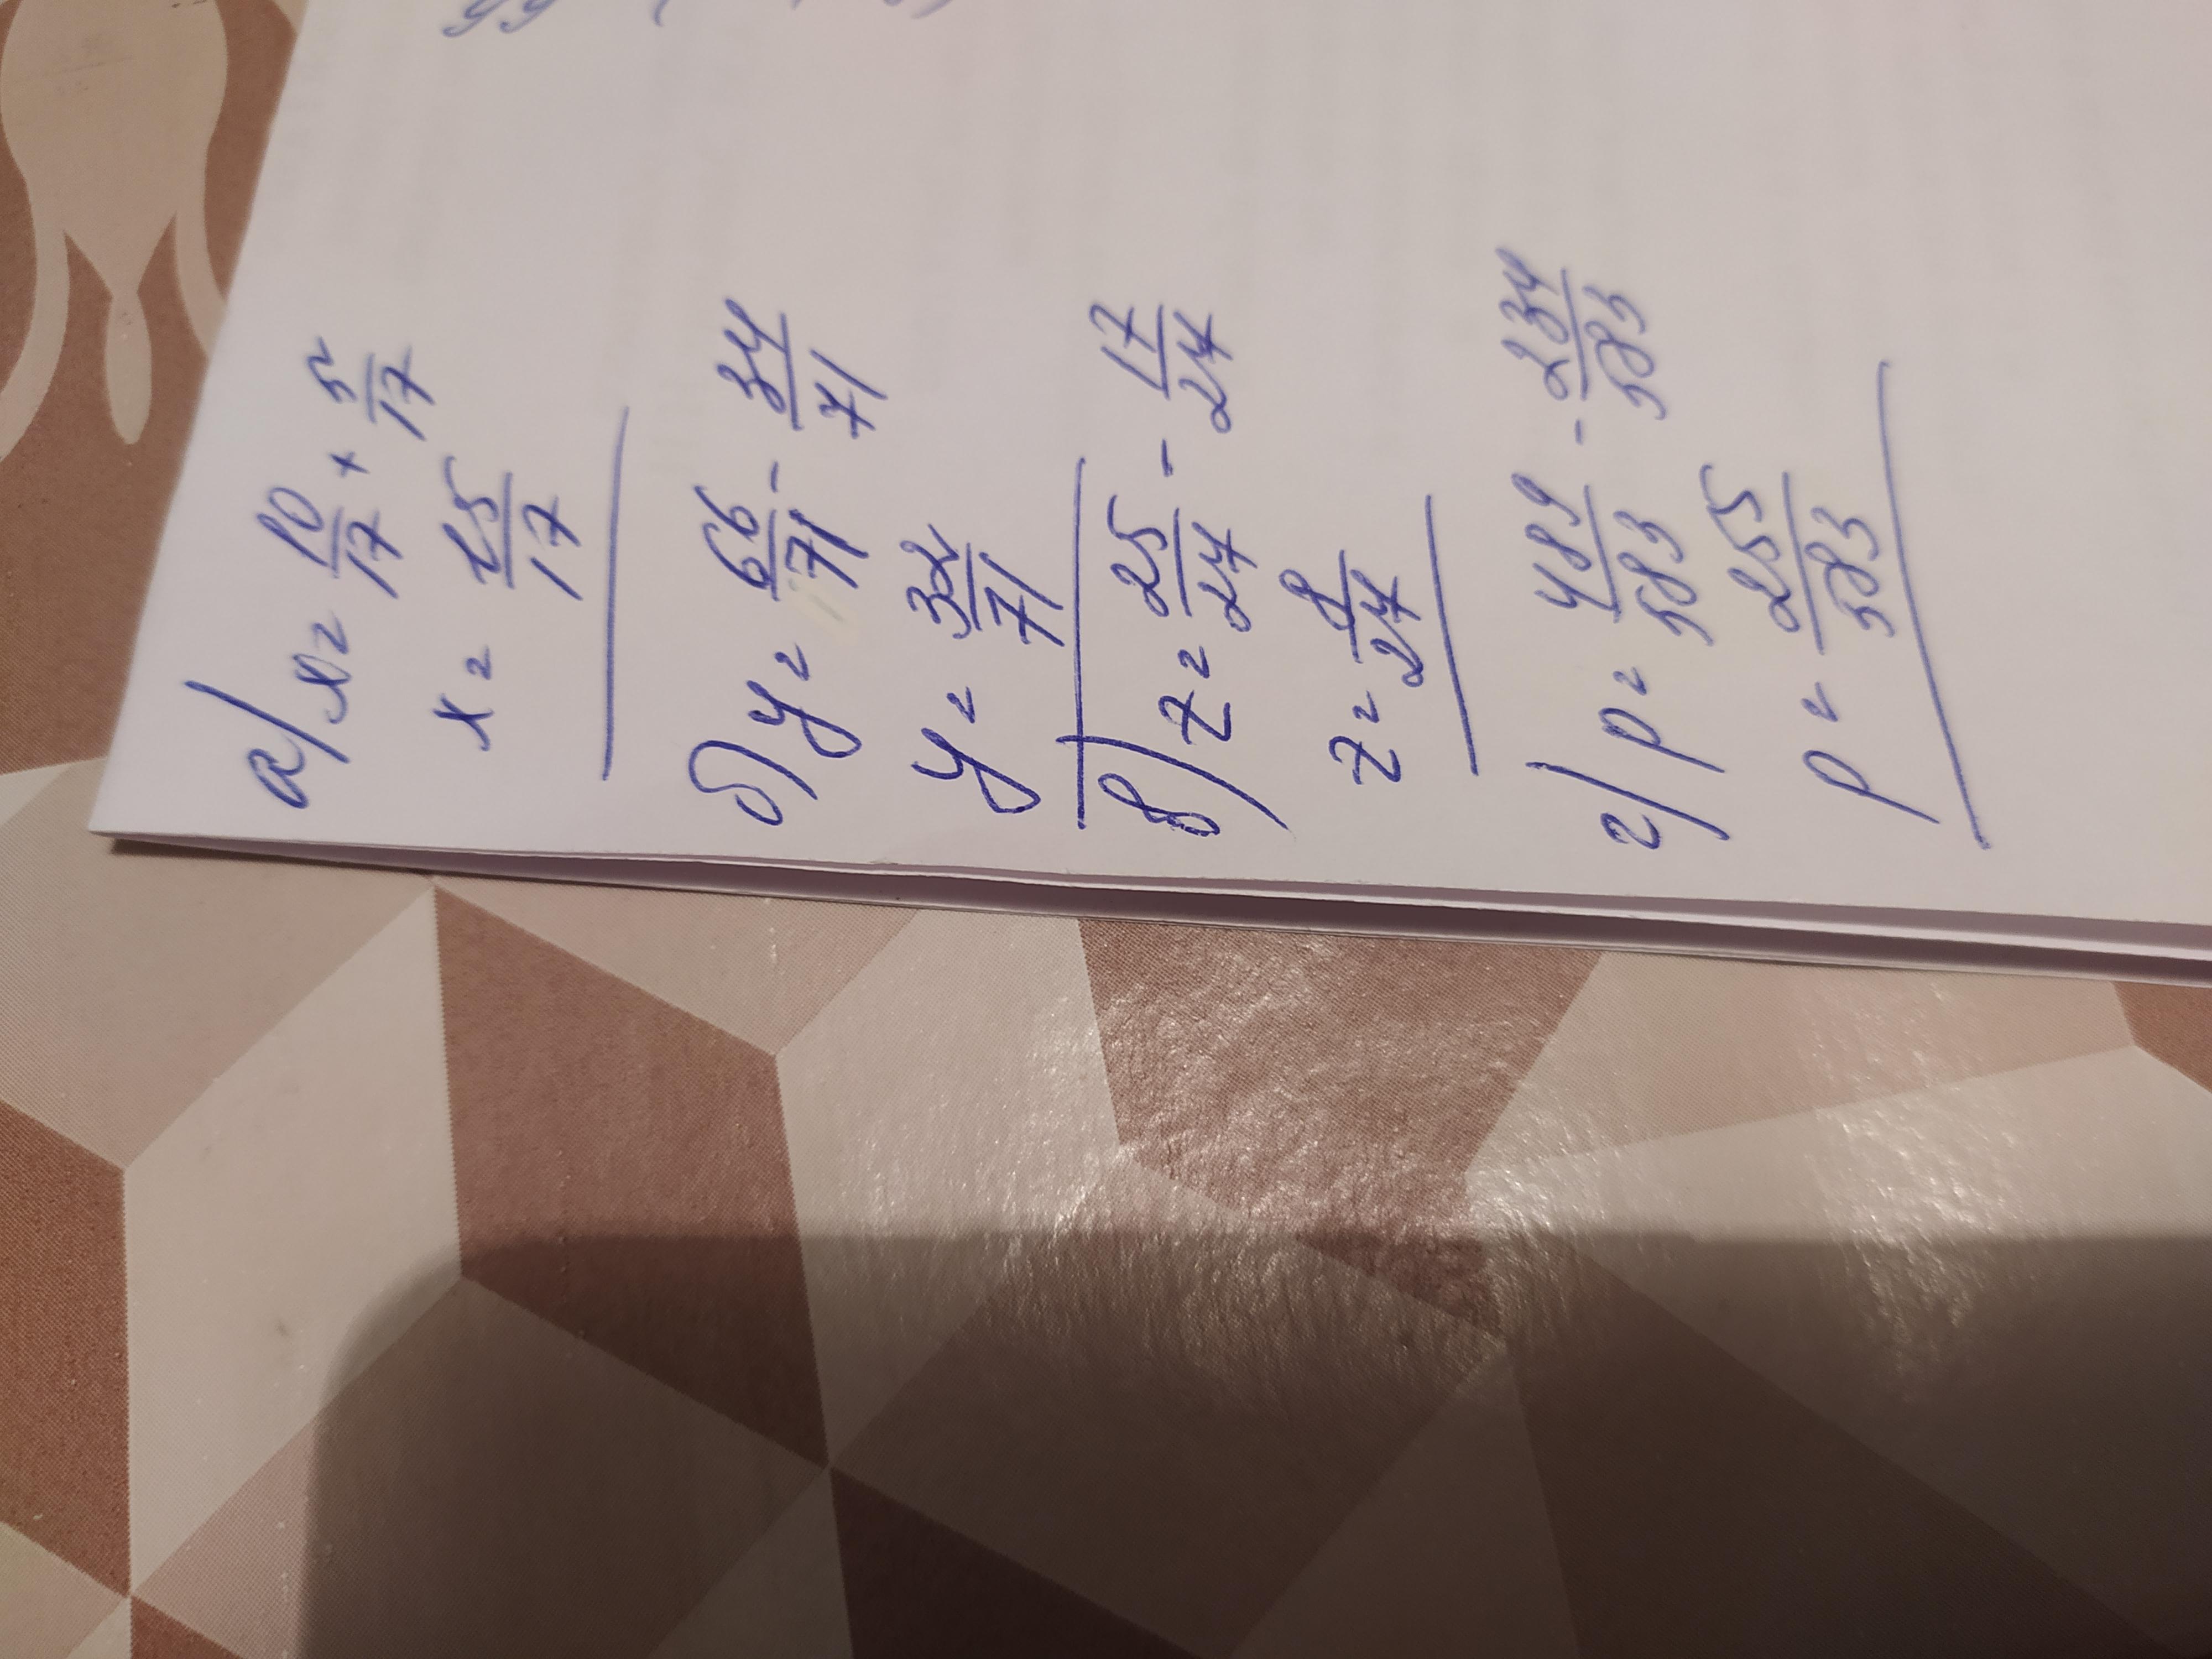 а) x = 10/17 + 5/17
x = 15/17
б) y = 66/71 - 34/71
y = 32/71
в) z = 25/27 - 17/27
z = 8/27
г) p = 489/583 - 234/583
p = 255/583